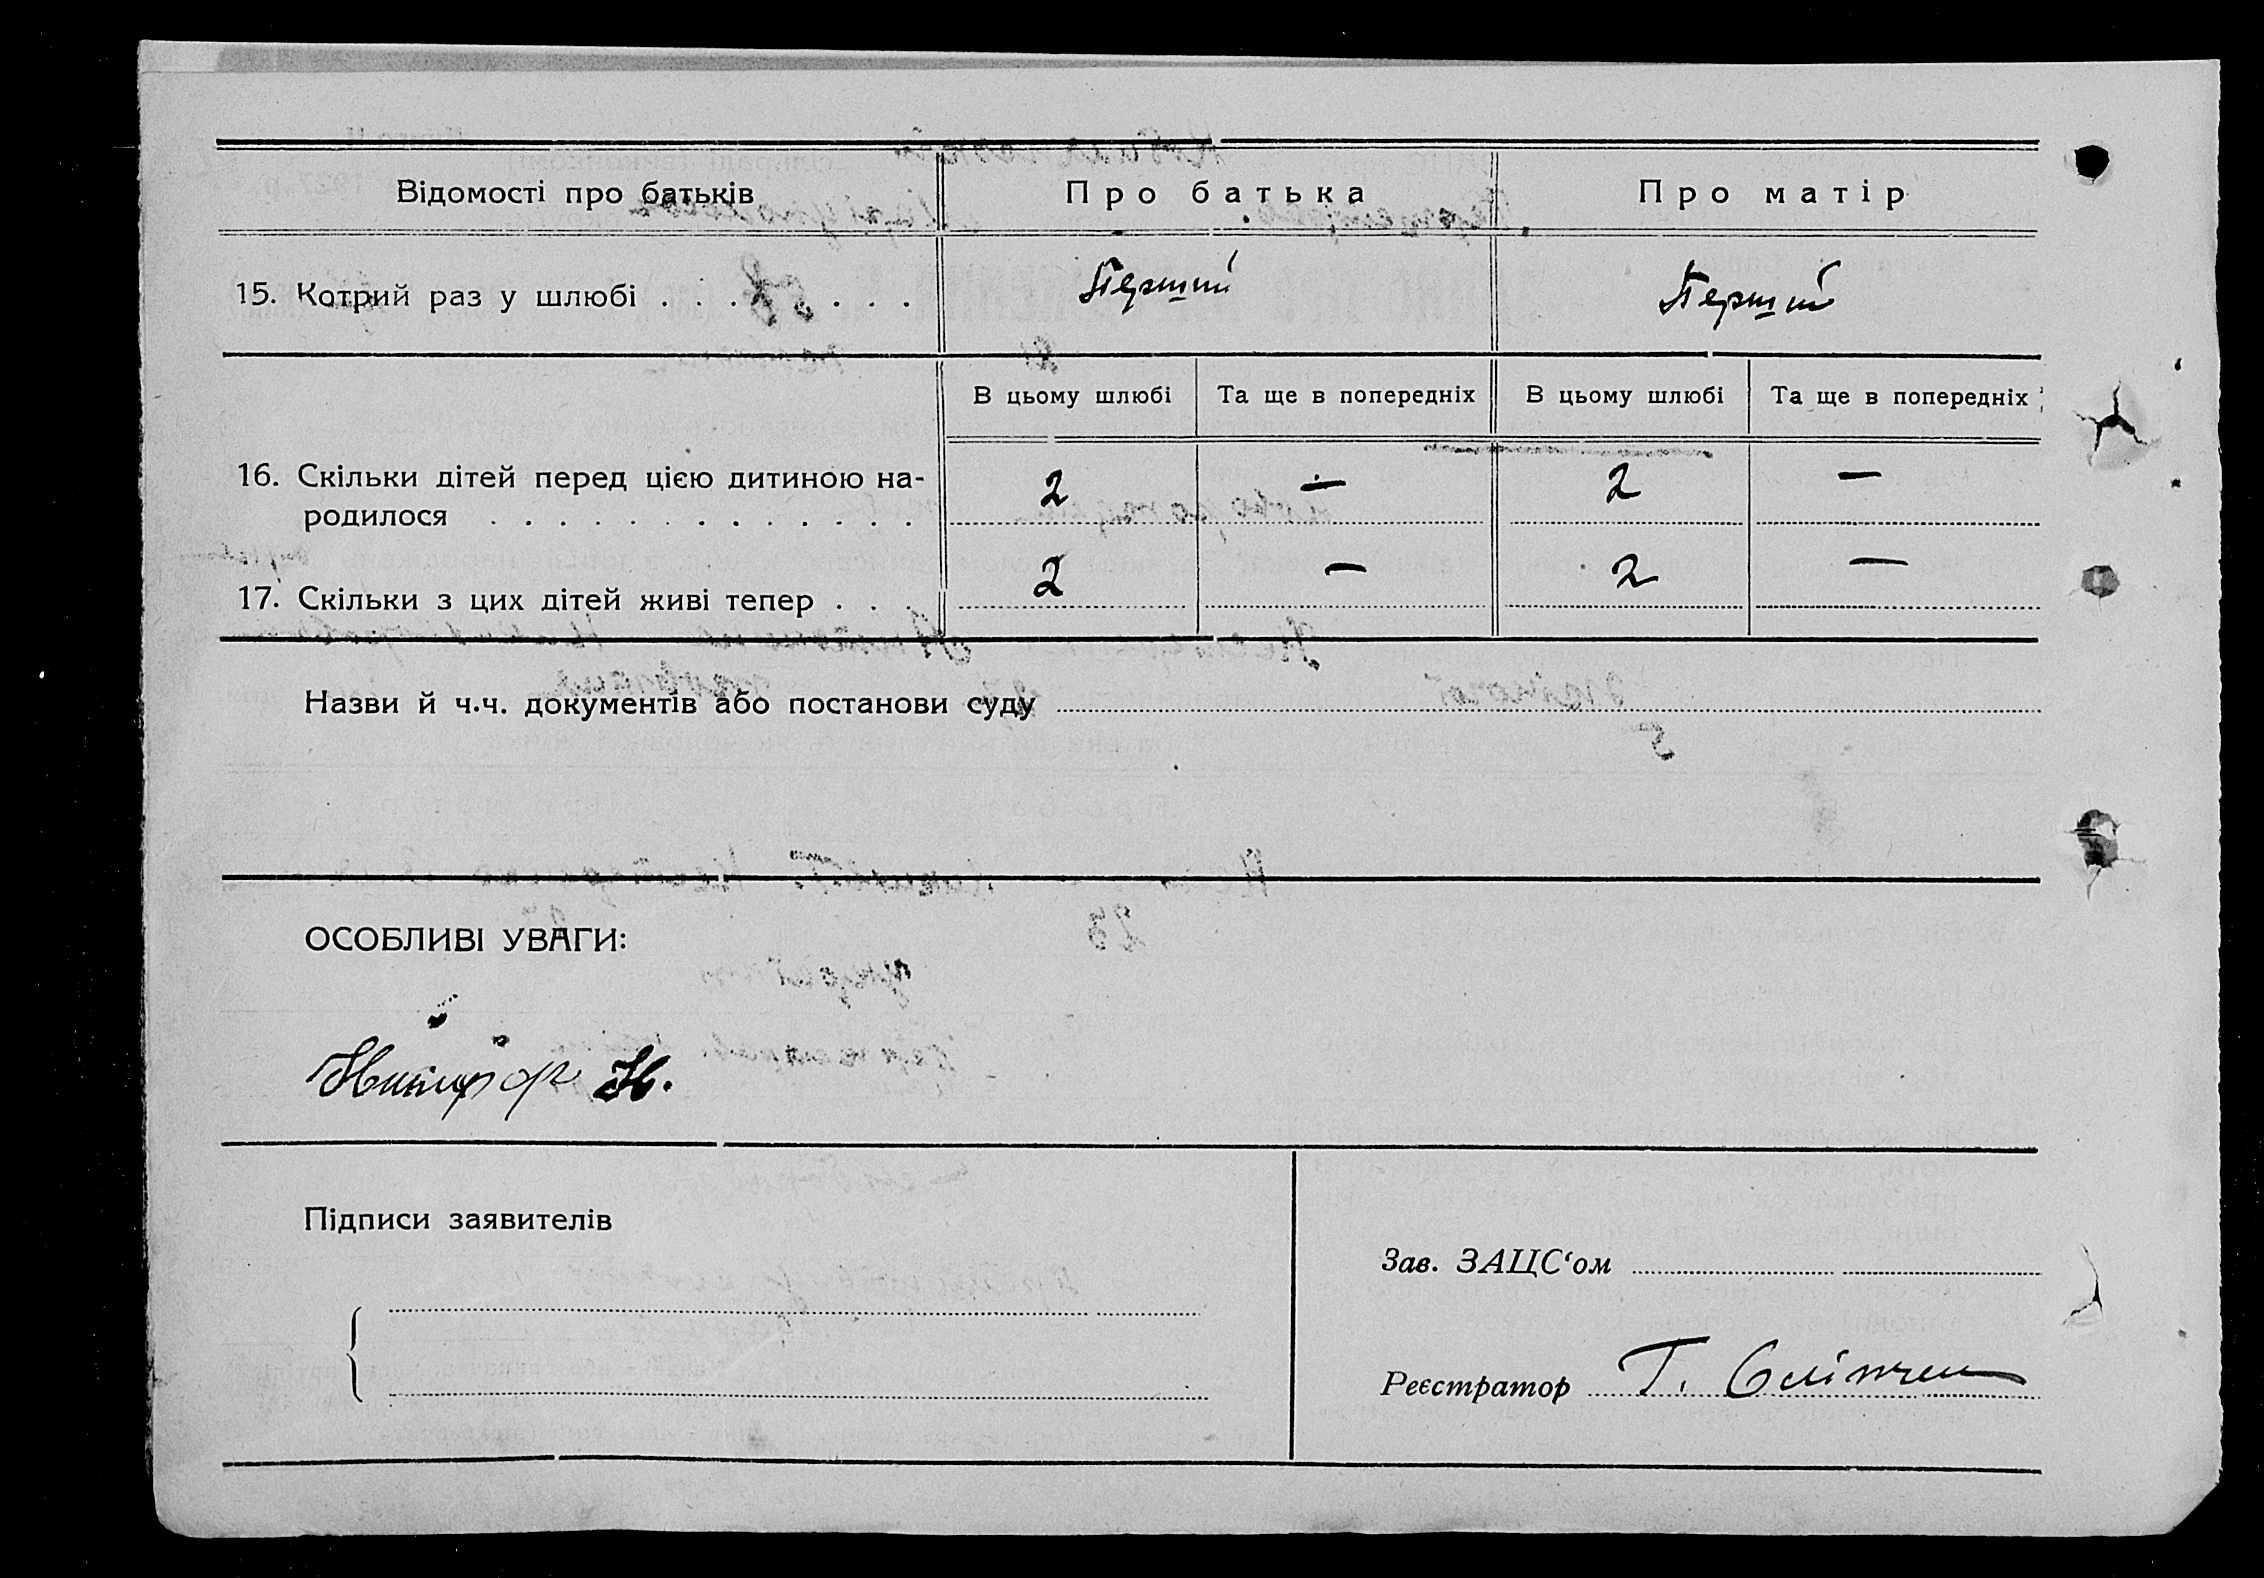 Відомості про батьків
Про батька
Про матір
15. Котрий раз у шлюбі . . . . . . . .
Перший
Перший
В цьому шлюбі
Та ще в попередніх
В цьому шлюбі
Та ще в попередніх
16. Скільки дітей перед цією дитиною на-
родилося . . . . . . . . . . . .
2
—
2
—
17. Скільки з цих дітей живі тепер . . .
2
—
2
—
Назви й ч.ч. документів або постанови суду
ОСОБЛИВІ УВАГИ:
Н.
Підписи заявителів
Зав. ЗАЦС‘ом
Реєстратор Т.